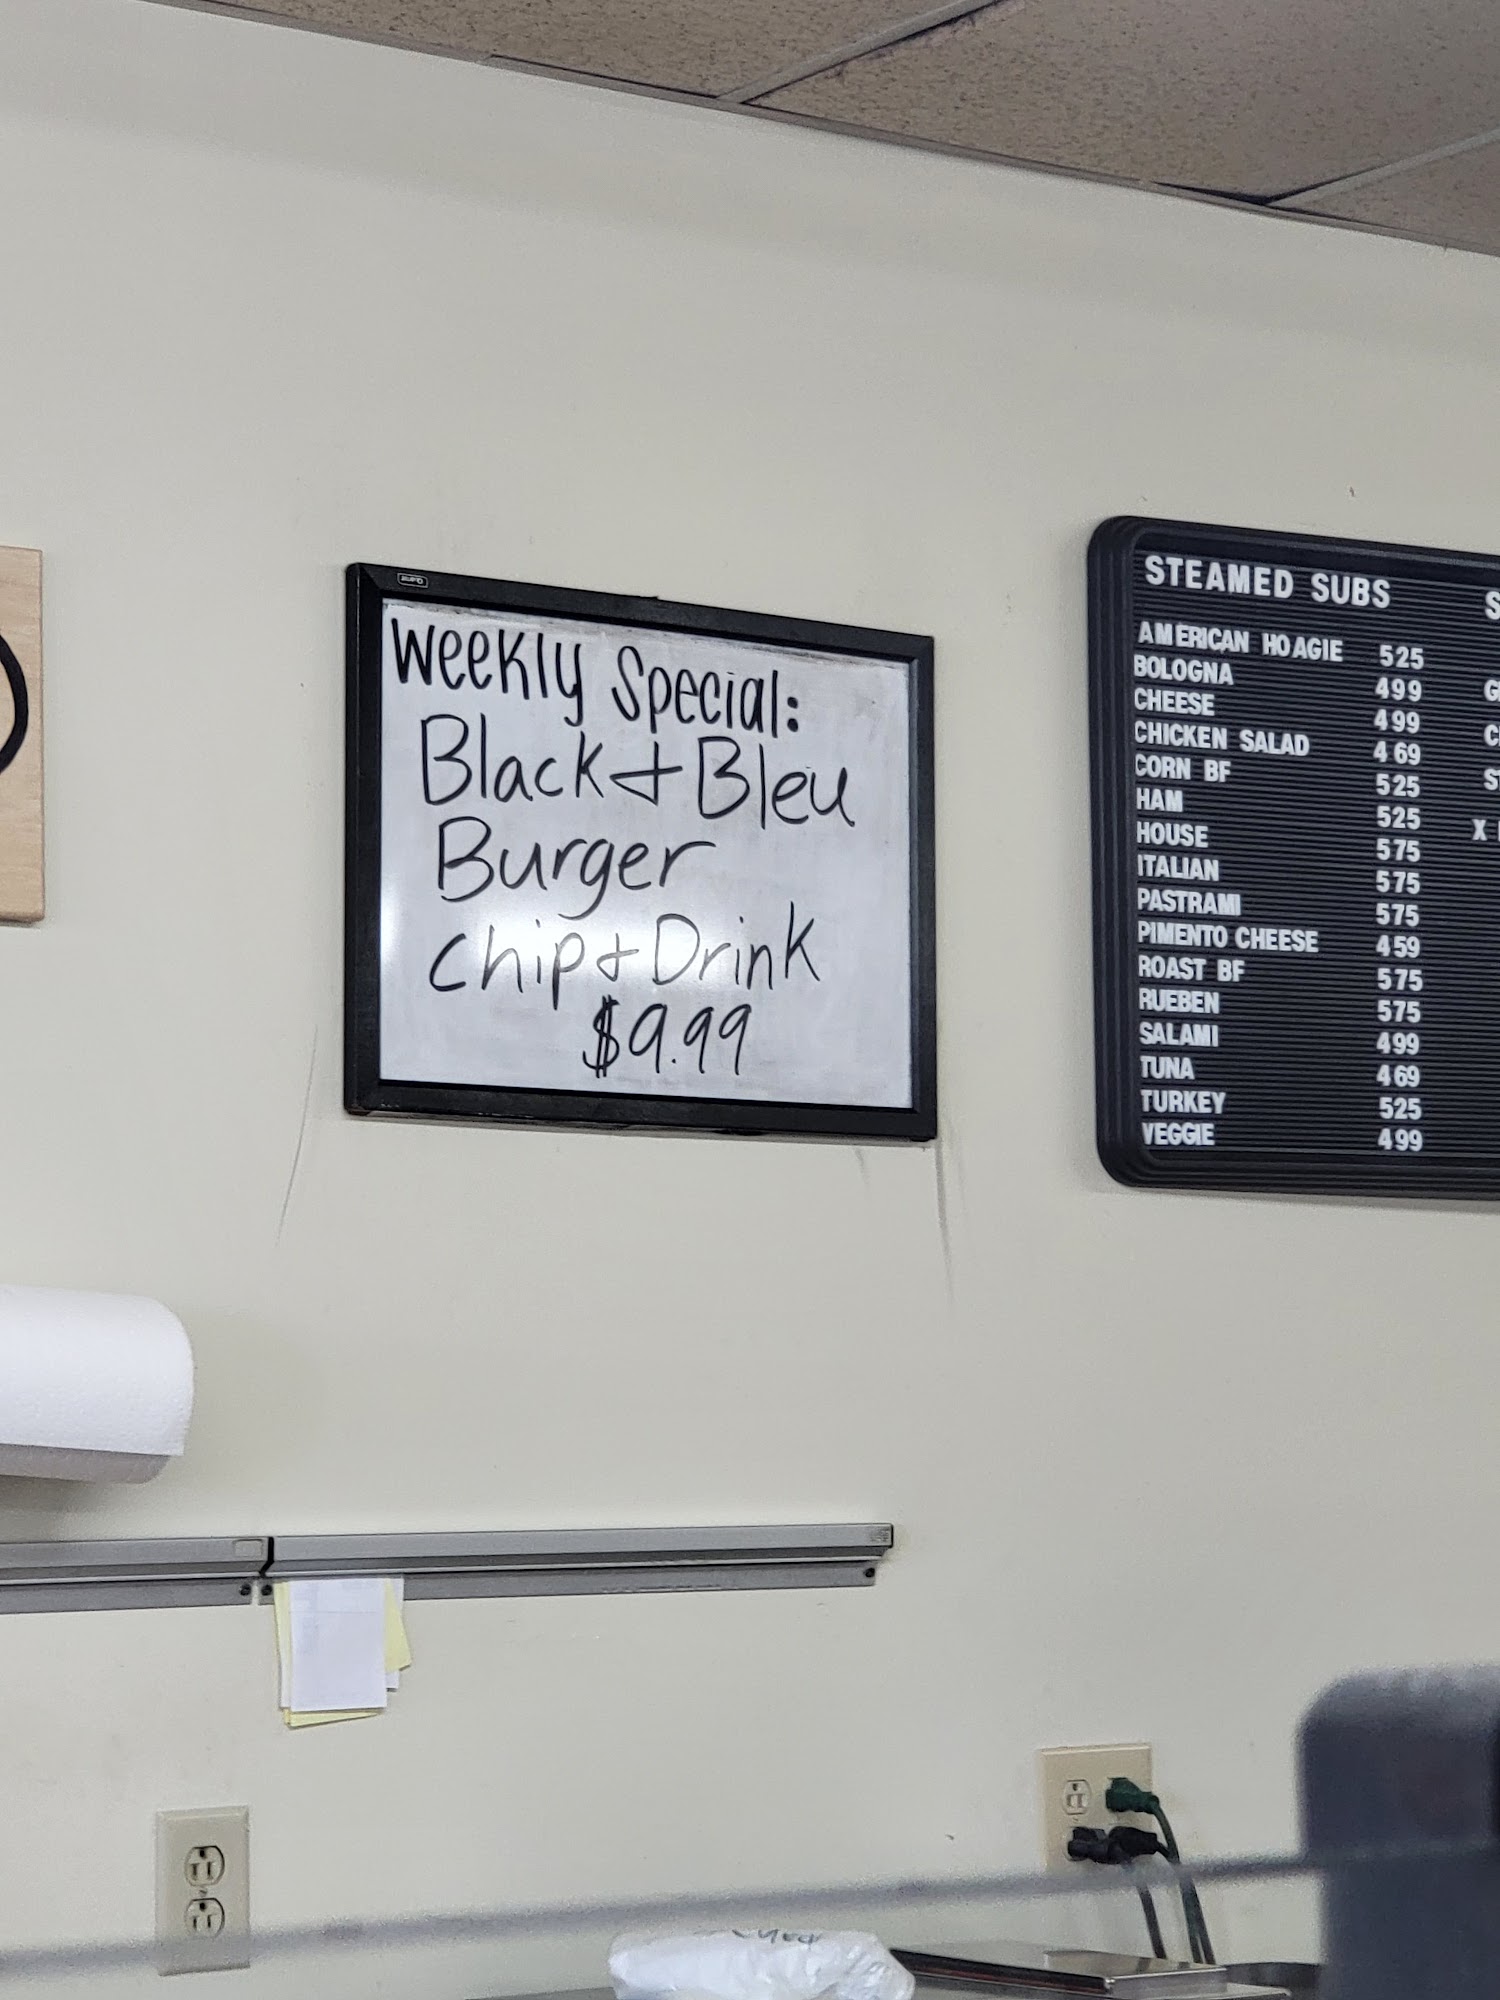 Weekly Special:
Black + Bleu
Burger
chip + Drink
$9.99
STEAMED SUBS
AMERICAN HOAGIE 525
BOLOGNA 499
CHEESE 499
CHICKEN SALAD 469
CORN BF 525
HAM 525
HOUSE 575
ITALIAN 575
PASTRAMI 575
PIMENTO CHEESE 459
ROAST BF 575
RUEBEN 575
SALAMI 499
TUNA 469
TURKEY 525
VEGGIE 499